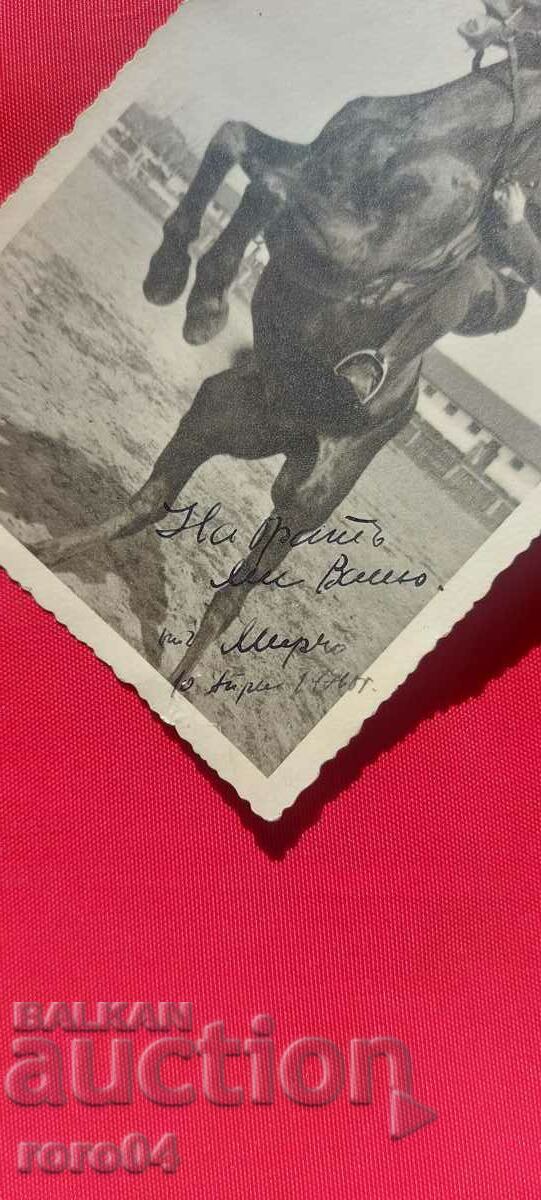 На братъ
ми Ваньо.
Мирчо
10 Април
BALKAN
auction
roro04